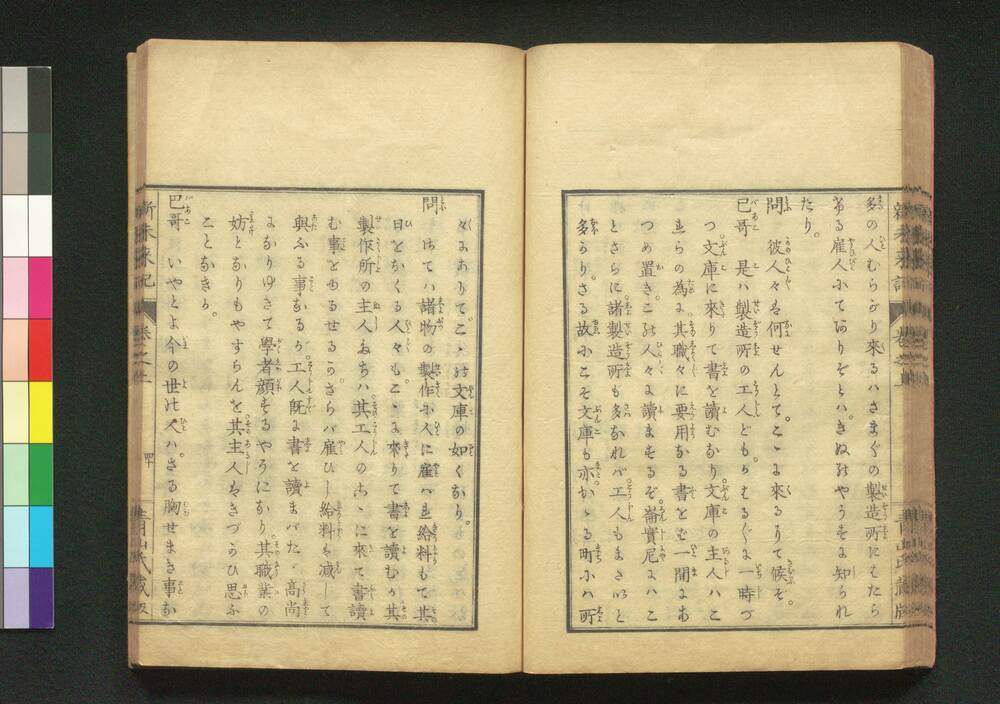 多の人むらがり來るハさま〲の製造所にはたら
ける雇人にてありぞとハ。きぬのやうすに知られ
たり。
問　彼人々は何せんとて。こゝに來るりて候ぞ。
巴哥　是ハ製造所の工人どもがはる〲に一時づ
つ文庫に來りて書を讀むなり文庫の主人ハこ
れらの為に其職々に要用なる書をば一間にあ
つめ置き。この人々に讀まするぞ。崙實尼にハこ
とさらに諸製造所も多なれバ工人もまさに
多かり。さる故にこそ文庫も亦かゝる町にハ所
々にありて。こゝの文庫の如くなり。
問　はてハ諸物の製作に人に雇ハれ給料もて其
日をおくる人々も。こゝに來りて書を讀むが其
製作所の主人たちハ其工人のこゝに來て書讀
む事をゆるせるうさらバ雇ひし給料を減して
與ふる事なるか。工人既に書を讀まバた。高尚
になりゆきて學者顔するやうになり。其職業の
妨となりもやすらんを其主人はきづかひ思ふ
ことなきか。
巴哥　いやとよ今の世の人ハ。さる胸せまき事な
新未來記　卷之上　四十　青山氏藏版